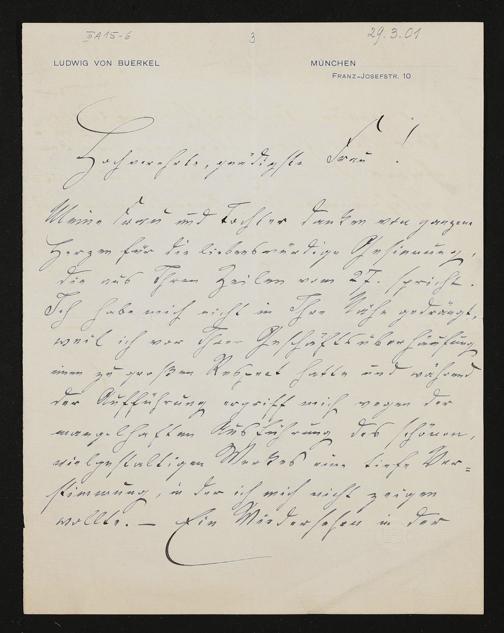 III A 15-6
3
29.3.01
LUDWIG VON BUERKEL
MÜNCHEN
FRANZ-JOSEFSTR. 10
Hochverehrte, gnädigste Frau!
Meine Frau und Tochter danken von ganzem
Herzen für die liebenswürdige Gesinnung,
die aus Ihren Zeilen vom 27. spricht.
Ich habe mich nicht in Ihre Nähe gedrängt,
weil ich vor Ihrer Geschäftsüberhäufung
immer zu großen Respect hatte und während
der Aufführung ergriff mich wegen der
mangelhaften Ausführung des schönen,
vielgestaltigen Werkes eine tiefe Ver-
stimmung, in der ich mich nicht zeigen
wollte. — Ein Wiedersehen in der